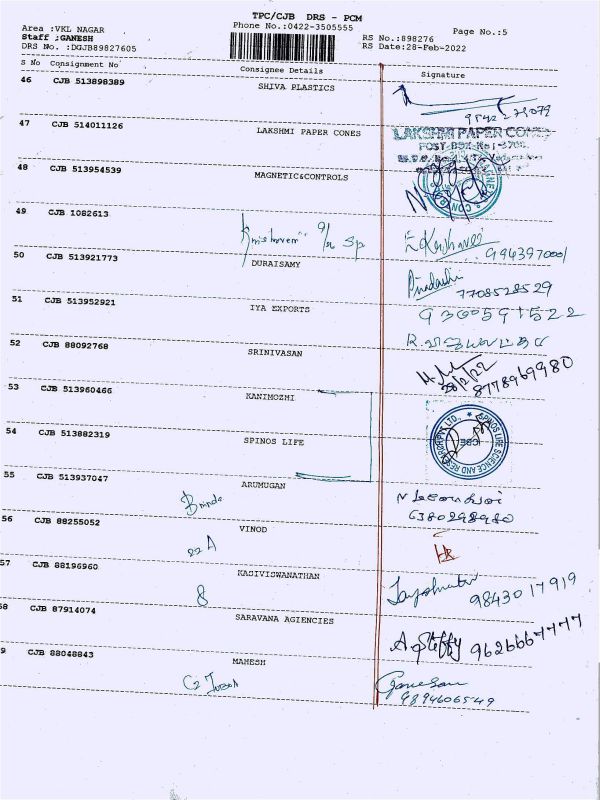 TPC/CJB DRS - PCM
Area :VKL NAGAR Phone No.:0422-3505555 Page No.:5
Staff :GANESH RS No.:898276
DRS No. :DGJB89827605 RS Date:28-Feb-2022
S No Consignment No Consignee Details Signature
46 CJB 513898389 SHIVA PLASTICS
47 CJB 514011126 LAKSHMI PAPER CONES LAKSHMI PAPER CONES
48 CJB 513954539 MAGNETIC&CONTROLS
49 CJB 1082613
9943970001
50 CJB 513921773 DURAISAMY
7708528529
51 CJB 513952921 IYA EXPORTS 9360591522
52 CJB 88092768 SRINIVASAN
28/2/22
8778969980
53 CJB 513960466 KANIMOZHI
54 CJB 513882319 SPINOS LIFE SPINOS LIFE SCIENCE AND RESEARCH PVT LTD.
55 CJB 513937047 ARUMUGAN
Brinda 6380298980
56 CJB 88255052 VINOD
22 A
57 CJB 88196960 KASIVISWANATHAN
8 9843017919
58 CJB 87914074 SARAVANA AGIENCIES
9626667777
9 CJB 88048843 MAHESH
Ganesan
9894606549